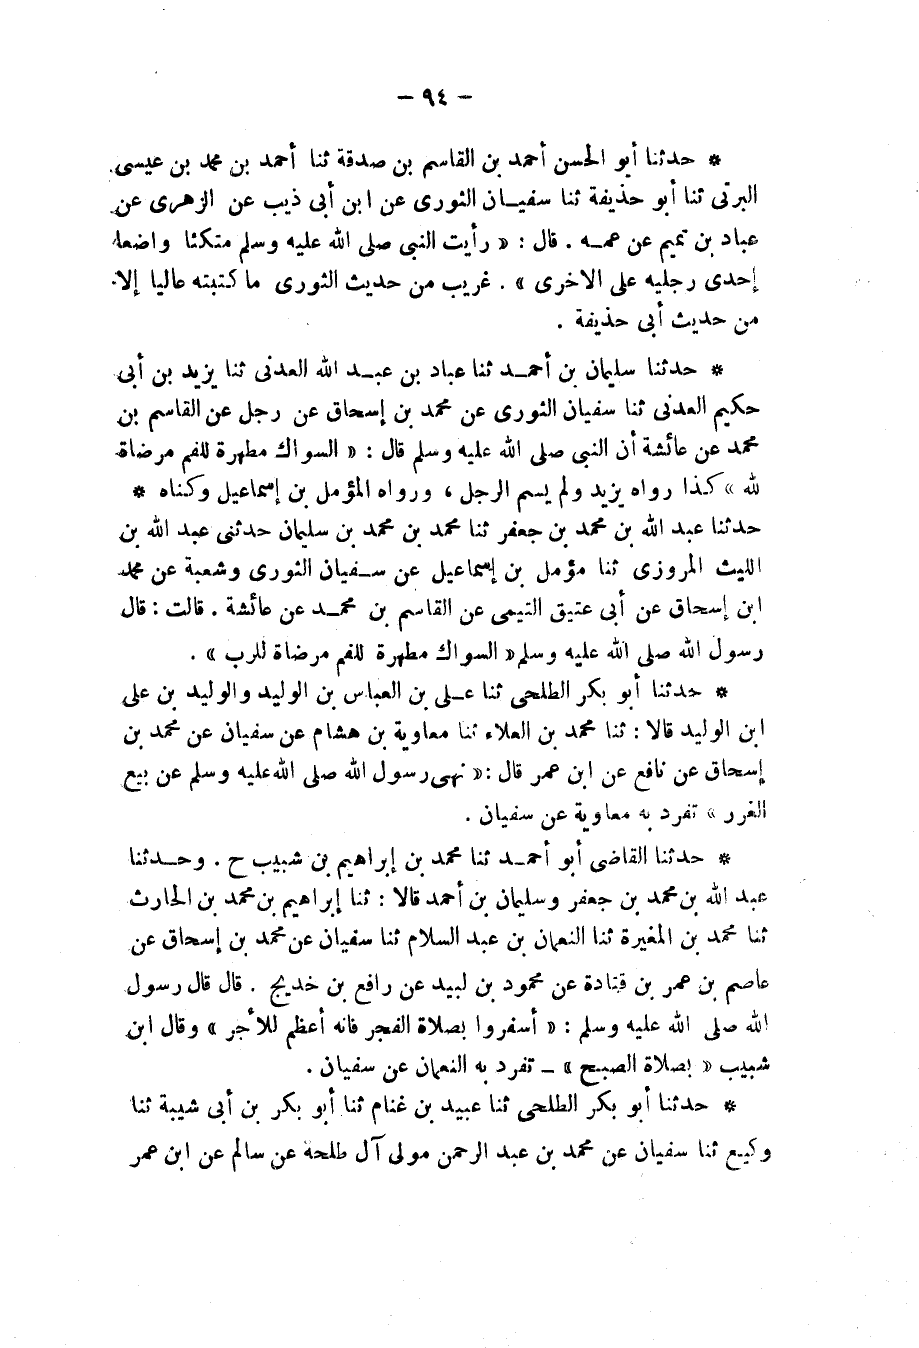 — ٩٤ —
* حدثنا أبو الحسن أحمد بن القاسم بن صدقة ثنا أحمد بن محمد بن عيسى
البرتى ثنا أبو حذيفة ثنا سفيان الثورى عن ابن أبى ذيب عن الزهرى عن
عباد بن تميم عن عمه . قال : « رأيت النبى صلى الله عليه وسلم متكئا واضعا
إحدى رجليه على الاخرى » . غريب من حديث الثورى ما كتبته عاليا إلا
من حديث أبى حذيفة .
* حدثنا سليمان بن أحمد ثنا عباد بن عبد الله العدنى ثنا يزيد بن أبى
حكيم العدنى ثنا سفيان الثورى عن محمد بن إسحاق عن رجل عن القاسم بن
محمد عن عائشة أن النبى صلى الله عليه وسلم قال : « السواك مطهرة للفم مرضاة
لله » كذا رواه يزيد ولم يسم الرجل ، ورواه المؤمل بن إسماعيل وكناه *
حدثنا عبد الله بن محمد بن جعفر ثنا محمد بن محمد بن سليمان حدثنى عبد الله بن
الليث المروزى ثنا مؤمل بن إسماعيل عن سفيان الثورى وشعبة عن محمد
ابن إسحاق عن أبى عتيق التيمى عن القاسم بن محمد عن عائشة . قالت : قال
رسول الله صلى الله عليه وسلم « السواك مطهرة للفم مرضاة للرب » .
* حدثنا أبو بكر الطلحى ثنا على بن العباس بن الوليد والوليد بن على
ابن الوليد قالا : ثنا محمد بن العلاء ثنا معاوية بن هشام عن سفيان عن محمد بن
إسحاق عن نافع عن ابن عمر قال : « نهى رسول الله صلى الله عليه وسلم عن بيع
الغرر » تفرد به معاوية عن سفيان .
* حدثنا القاضى أبو أحمد ثنا محمد بن إبراهيم بن شبيب ح . وحدثنا
عبد الله بن محمد بن جعفر وسليمان بن أحمد قالا : ثنا إبراهيم بن محمد بن الحارث
ثنا محمد بن المغيرة ثنا النعمان بن عبد السلام ثنا سفيان عن محمد بن إسحاق عن
عاصم بن عمر بن قتادة عن محمود بن لبيد عن رافع بن خديج . قال قال رسول
الله صلى الله عليه وسلم : « أسفروا بصلاة الفجر فانه أعظم للأجر » وقال ابن
شبيب « بصلاة الصبح » — تفرد به النعمان عن سفيان .
* حدثنا أبو بكر الطلحى ثنا عبيد بن غنام ثنا أبو بكر بن أبى شيبة ثنا
وكيع ثنا سفيان عن محمد بن عبد الرحمن مولى آل طلحة عن سالم عن ابن عمر